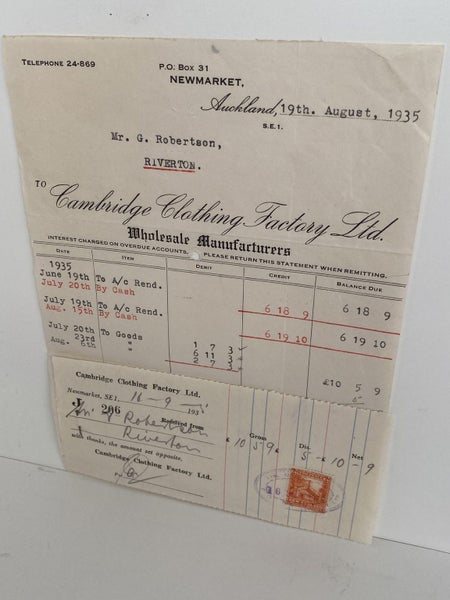 TELEPHONE 24-869
P.O. BOX 31
NEWMARKET,
Auckland, 19th. August, 1935
S.E.1.
Mr. G. Robertson,
RIVERTON.
TO Cambridge Clothing Factory Ltd.
Wholesale Manufacturers
INTEREST CHARGED ON OVERDUE ACCOUNTS. PLEASE RETURN THIS STATEMENT WHEN REMITTING.
DATE ITEM DEBIT CREDIT BALANCE DUE
1935
June 19th To A/c Rend. 6 18 9
July 20th By Cash 6 18 9
July 19th To A/c Rend. 6 19 10
Aug. 15th By Cash 6 19 10
July 20th To Goods 1 7 3
23rd " 6 11 3
Aug. 6th " 2 7 3
£10 5 9
Cambridge Clothing Factory Ltd.
Newmarket, SE1. 16-9- 193
J 206
Received from
Mr G Robertson
Riverton
with thanks, the amount set opposite.
Cambridge Clothing Factory Ltd.
Gross Dis. Net
£ 10 5 9 £ 5 - £ 10 - 9
16